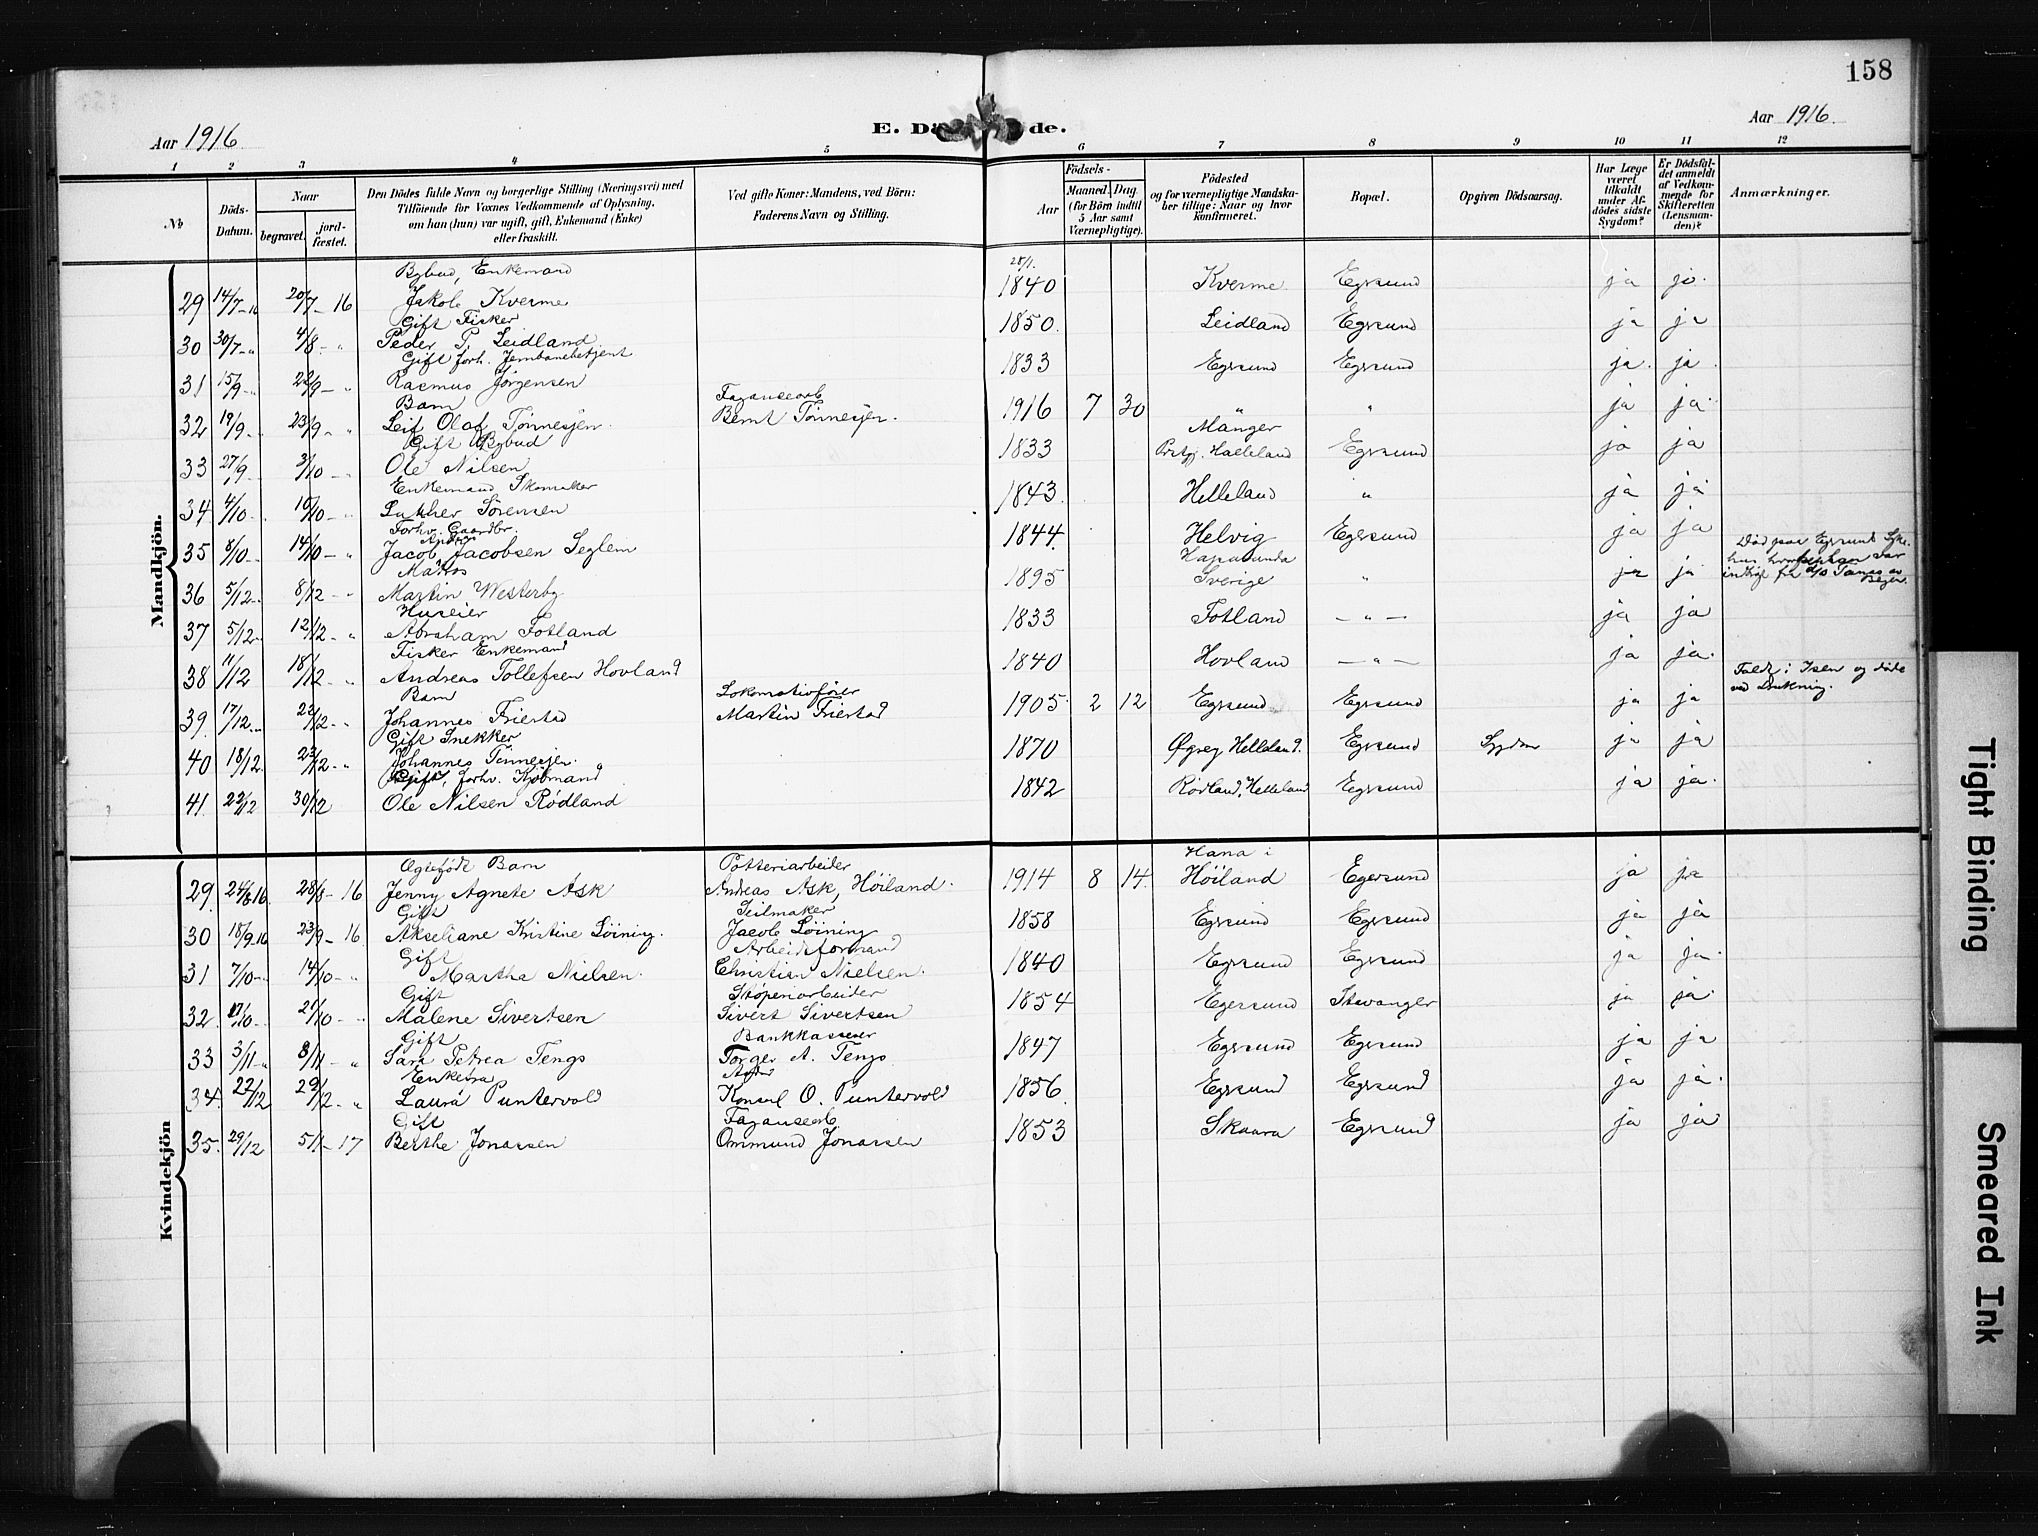 158
Aar 1916.
E. Dö de.
Aar 1916.
1 2 3 4 5 6 7 8 9 10 11 12
No
Döds-Datum.
Naar
begravet.
jord-fæstet.
Den Dödes fulde Navn og borgerlige Stilling (Næringsvei) med
Tilföiende for Voxnes Vedkommende af Oplysning,
om han (hun) var ugift, gift, Enkemand (Enke)
eller fraskilt.
Ved gifte Koner: Mandens, ved Börn:
Faderens Navn og Stilling.
Födsels-
Aar
Maaned. Dag.
(for Börn indtil
5 Aar samt
Værnepligtige).
Födested
og for værnepligtige Mandska-
ber tillige: Naar og hvor
konfirmeret.
Bopæl.
Opgiven Dödsaarsag.
Har Læge
været
tilkaldt
under Af-
dödes sidste
Sygdom?
Er Dödsfal-
det anmeldt
af Vedkom-
mende for
Skifteretten
(Lensman-
den)?
Anmærkninger.
Mandkjön.
Bybud, Enkemand
29 14/7-16 20/7-16 Jakob Kverme 28/1. 1840 Kverme Egersund ja ja.
Gift Fisker
30 30/7-" 4/8-" Peder P. Leidland 1850. Leidland Egersund ja ja
Gift forh. Jernbanebetjent
31 15/9-" 22/9-" Rasmus Jörgensen 1833 Egersund Egersund ja. ja.
Barn Fayansearb
32 19/9-" 23/9-" Leif Olaf Tönnesjen. Bernt Tönnesjen. 1916 7 30 " " ja ja.
Gift Bybud Manger
33 27/9-" 3/10-" Ole Nilsen 1833 Prstgj. Haelleland Egersund ja ja
Enkemand Skomaker
34 4/10-" 10/10-" Lukher Sörensen 1843. Helleland " ja ja
Forhv. Gaardbr.
35 8/10-" 14/10-" Jacob Jacobsen Seglem 1844. Helvig Egersund ja ja
Matros Haparanda
36 5/12-" 8/12-" Martin Westerby 1895 Sverige " ja ja Död paa Egersunds Syke-
Huseier
37 5/12-" 12/12-" Abraham Fotland 1833 Fotland -"- ja ja
Fisker Enkemand
38 11/12 18/12-" Andreas Tollefsen Hovland 1840 Hovland -"- ja ja.
Barn Lokomotivförer
39. 17/12-" 22/12-" Johannes Friestad Martin Friestad 1905 2 12 Egersund Egersund ja ja Faldt i Isen og döde
ved Drukning.
Gift Snekker
40 18/12. 23/12-" Johannes Tönnesjen. 1870 Øgrey, Helleland. Egersund Sygdom ja ja
Gift, forhv. Kjöbmand
41. 22/12 30/12 Ole Nilsen Rödland 1842 Rödland, Helleland Egersund ja ja.
Kvindekjön
Ægtefödt Barn Potteriarbeider Hana i
29. 24/8 16. 28/8-16 Jenny Agnete Ask Andreas Ask, Höiland. 1914 8 14. Höiland Egersund ja ja
Gift Seilmaker
30 18/9-16 23/9-16 Akseliane Kristine Löining. Jacob Löining 1858 Egersund Egersund ja ja
Gift Arbeidsformand
31 7/10-" 14/10-" Martha Nielsen. Christian Nielsen. 1840 Egersund Egersund ja ja.
Gift Stöperiarbeider
32. 17/10-" 21/10-" Malene Sivertsen Sivert Sivertsen 1854 Egersund Stavanger ja ja.
Gift Bankkasserer
33 3/11-" 8/11-" Sara Petrea Tengs Torger A. Tengs 1847 Egersund Egersund ja ja
Enkefru
34. 22/12 29/12-" Laura Puntervold Konsul O. Puntervold 1856. Egersund Egersund ja ja.
Gift Fayansearb
35. 29/12 5/1-17 Berthe Jonassen Ommund Jonassen 1853 Skaara Egersund ja ja
Tight Binding
Smeared Ink